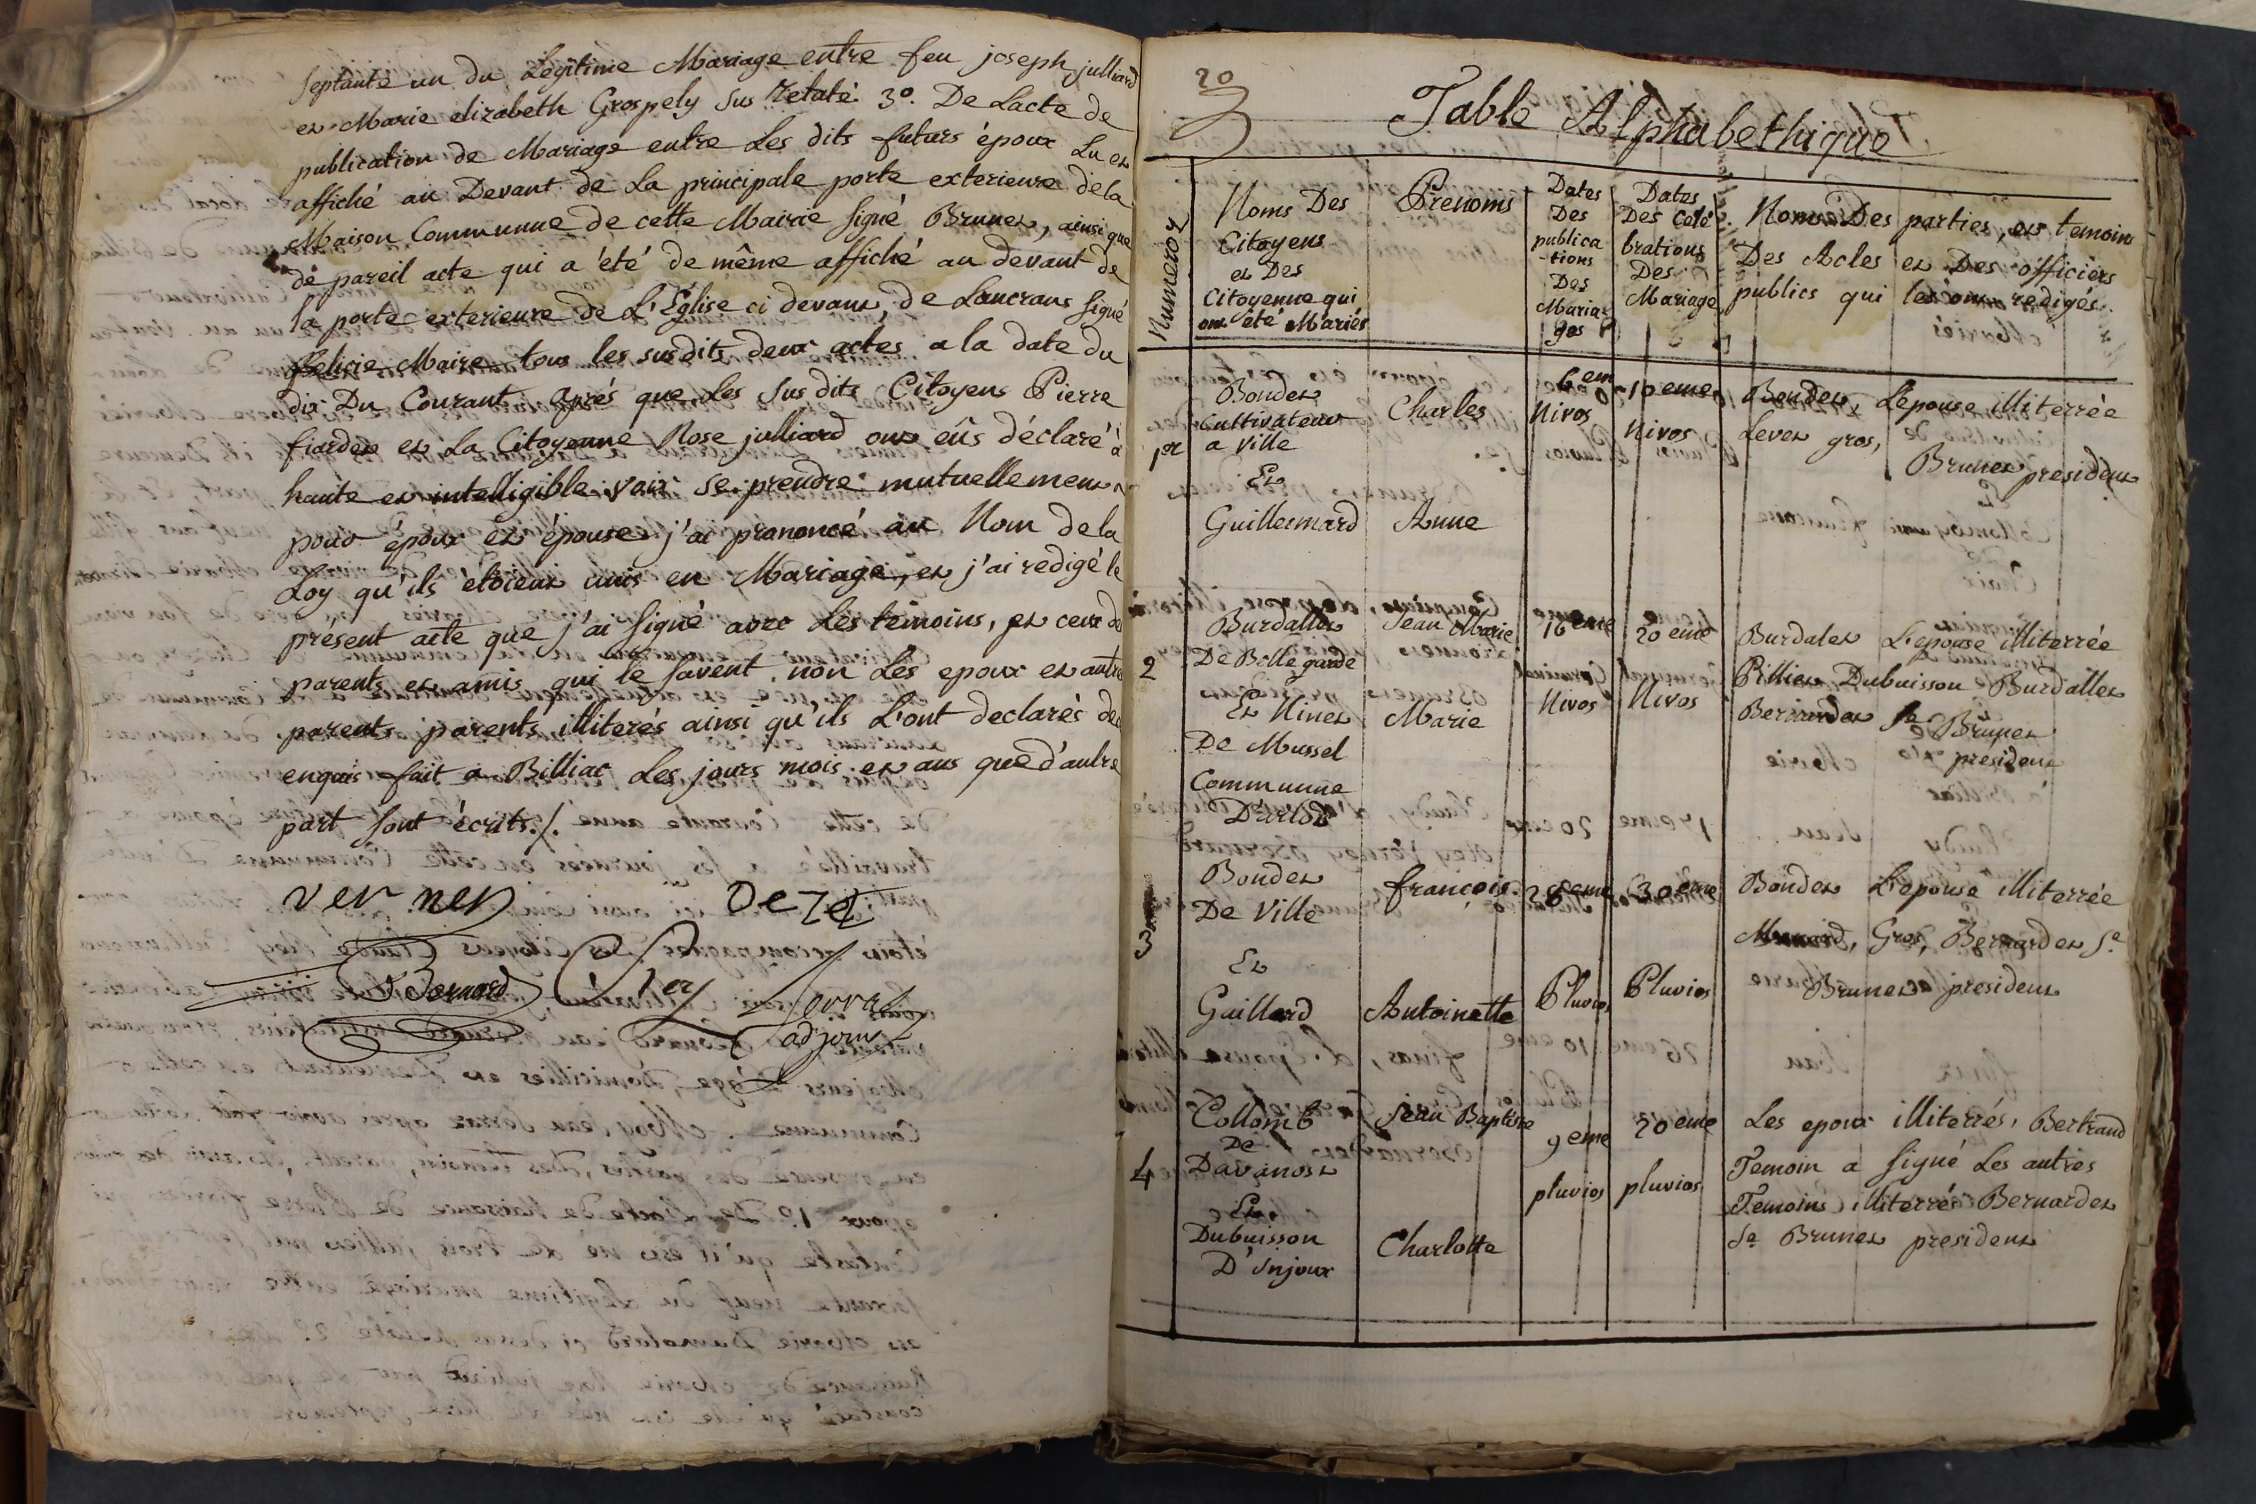 septante un du Legitime Mariage entre feu joseph julliard
et Marie elizabeth Grospely sus relaté 3º. De Lacte de
publication de Mariage entre Les dits futurs époux Lu et
affiché au Devant de La principale porte exterieure dela
Maison Commune de cette Mairie signé Brunet, ainsi que
de pareil acte qui a été de même affiché au devant de
la porte exterieure de L'Eglise ci devant, de Lancrans signé
Maire tous les susdits deux actes a la date du
dix Du Courant, aprés que Les sus dits Citoyens Pierre
fiardet et La Citoyenne Rose julliard ont eûs déclaré à
haute et intelligible voix se prendre mutuellement
pour époux et épouse j'ai prononcé au Nom de la
Loy qu'ils étoient unis en Mariage, et j'ai redigé le
présent acte que j'ai signé avec Les témoins, et ceux des
parents et amis qui le savent non Les epoux et autres
parents parents illiterés ainsi qu'ils L'ont declarés de
enquis fait a Billiac Les jours mois et ans que d'autre
part sont écrits ./.
vernet
Bornard
Serra
adjoint
20
Table Alphabethique
Numeros
Noms Des
Citoyens
et Des
Citoyenne qui
ont été Mariés
Prenoms
Dates
Des
publica
-tions
Des
Maria-
ges
Dates
Des Celé
brations
Des
Mariage
Noms Des parties, et temoins
Des Actes et Des officiers
publics qui les ont redigés.
1er
Bondet
Cultivateur
a Ville
Et
Guillermard
Charles
Anne
6eme
Nivos
10eme
Nivos
Bondet, L'epouse illiterrée
Levet gros,
Brunet president
2
Burdallet
De Bellegarde
Et Ninet
De Mussel
Commune
D'arlod
Jean Marie
Marie
16eme
Nivos
20eme
Nivos
Burdalet L'epouse illiterrée
Pilliet Dubuisson Burdallet
Bernardet Se Brunet
president
3
Bondet
De Ville
Et
Guillard
françois
Antoinette
28eme
Pluvios
30eme
Pluvios
Bondet L'epouse illiterrée
Gros, Bernardet Se
Brunet president
4
Collomb
De
Davanost
Et
Dubuisson
D'Injoux
Jean Baptiste
Charlotte
9eme
pluvios
20eme
pluvios
Les epoux illiterrés, Bertrand
Temoin a signé Les autres
Temoins illiterrés Bernardet
Se Brunet president